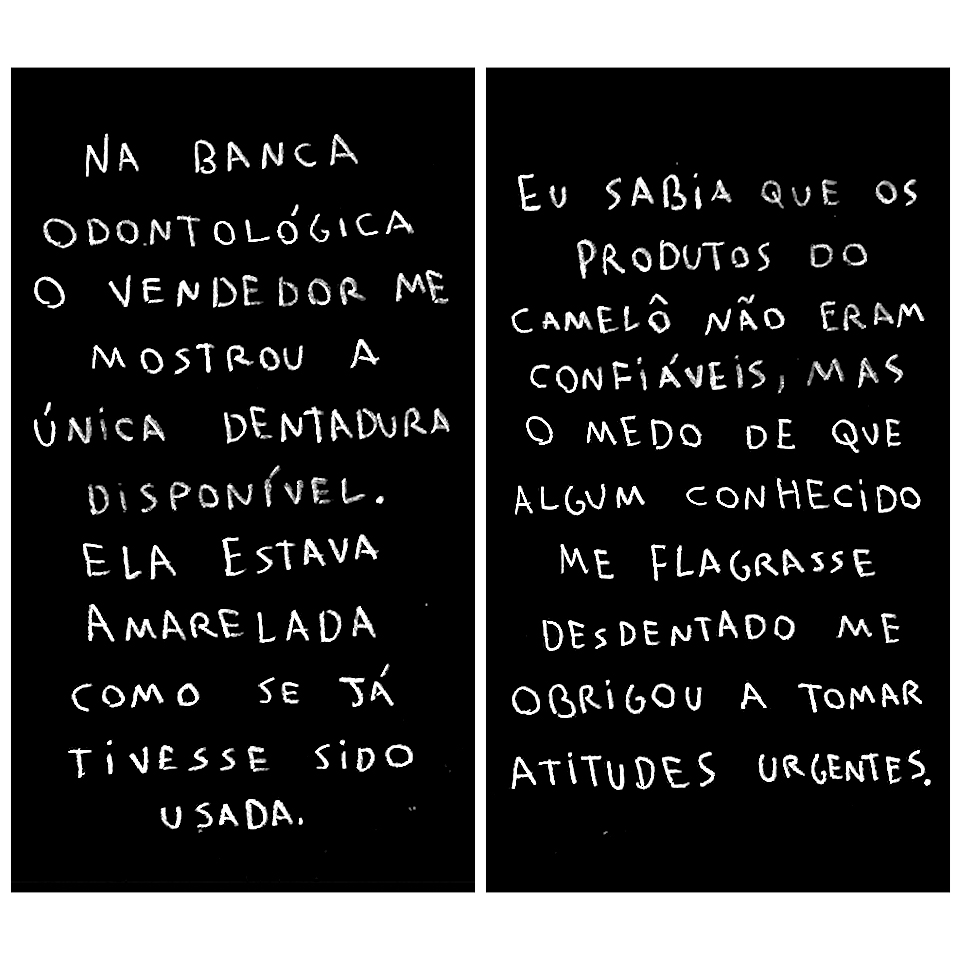 NA BANCA
ODONTOLÓGICA
O VENDEDOR ME
MOSTROU A
ÚNICA DENTADURA
DISPONÍVEL.
ELA ESTAVA
AMARELADA
COMO SE JÁ
TIVESSE SIDO
USADA.
EU SABIA QUE OS
PRODUTOS DO
CAMELÔ NÃO ERAM
CONFIÁVEIS, MAS
O MEDO DE QUE
ALGUM CONHECIDO
ME FLAGRASSE
DESDENTADO ME
OBRIGOU A TOMAR
ATITUDES URGENTES.